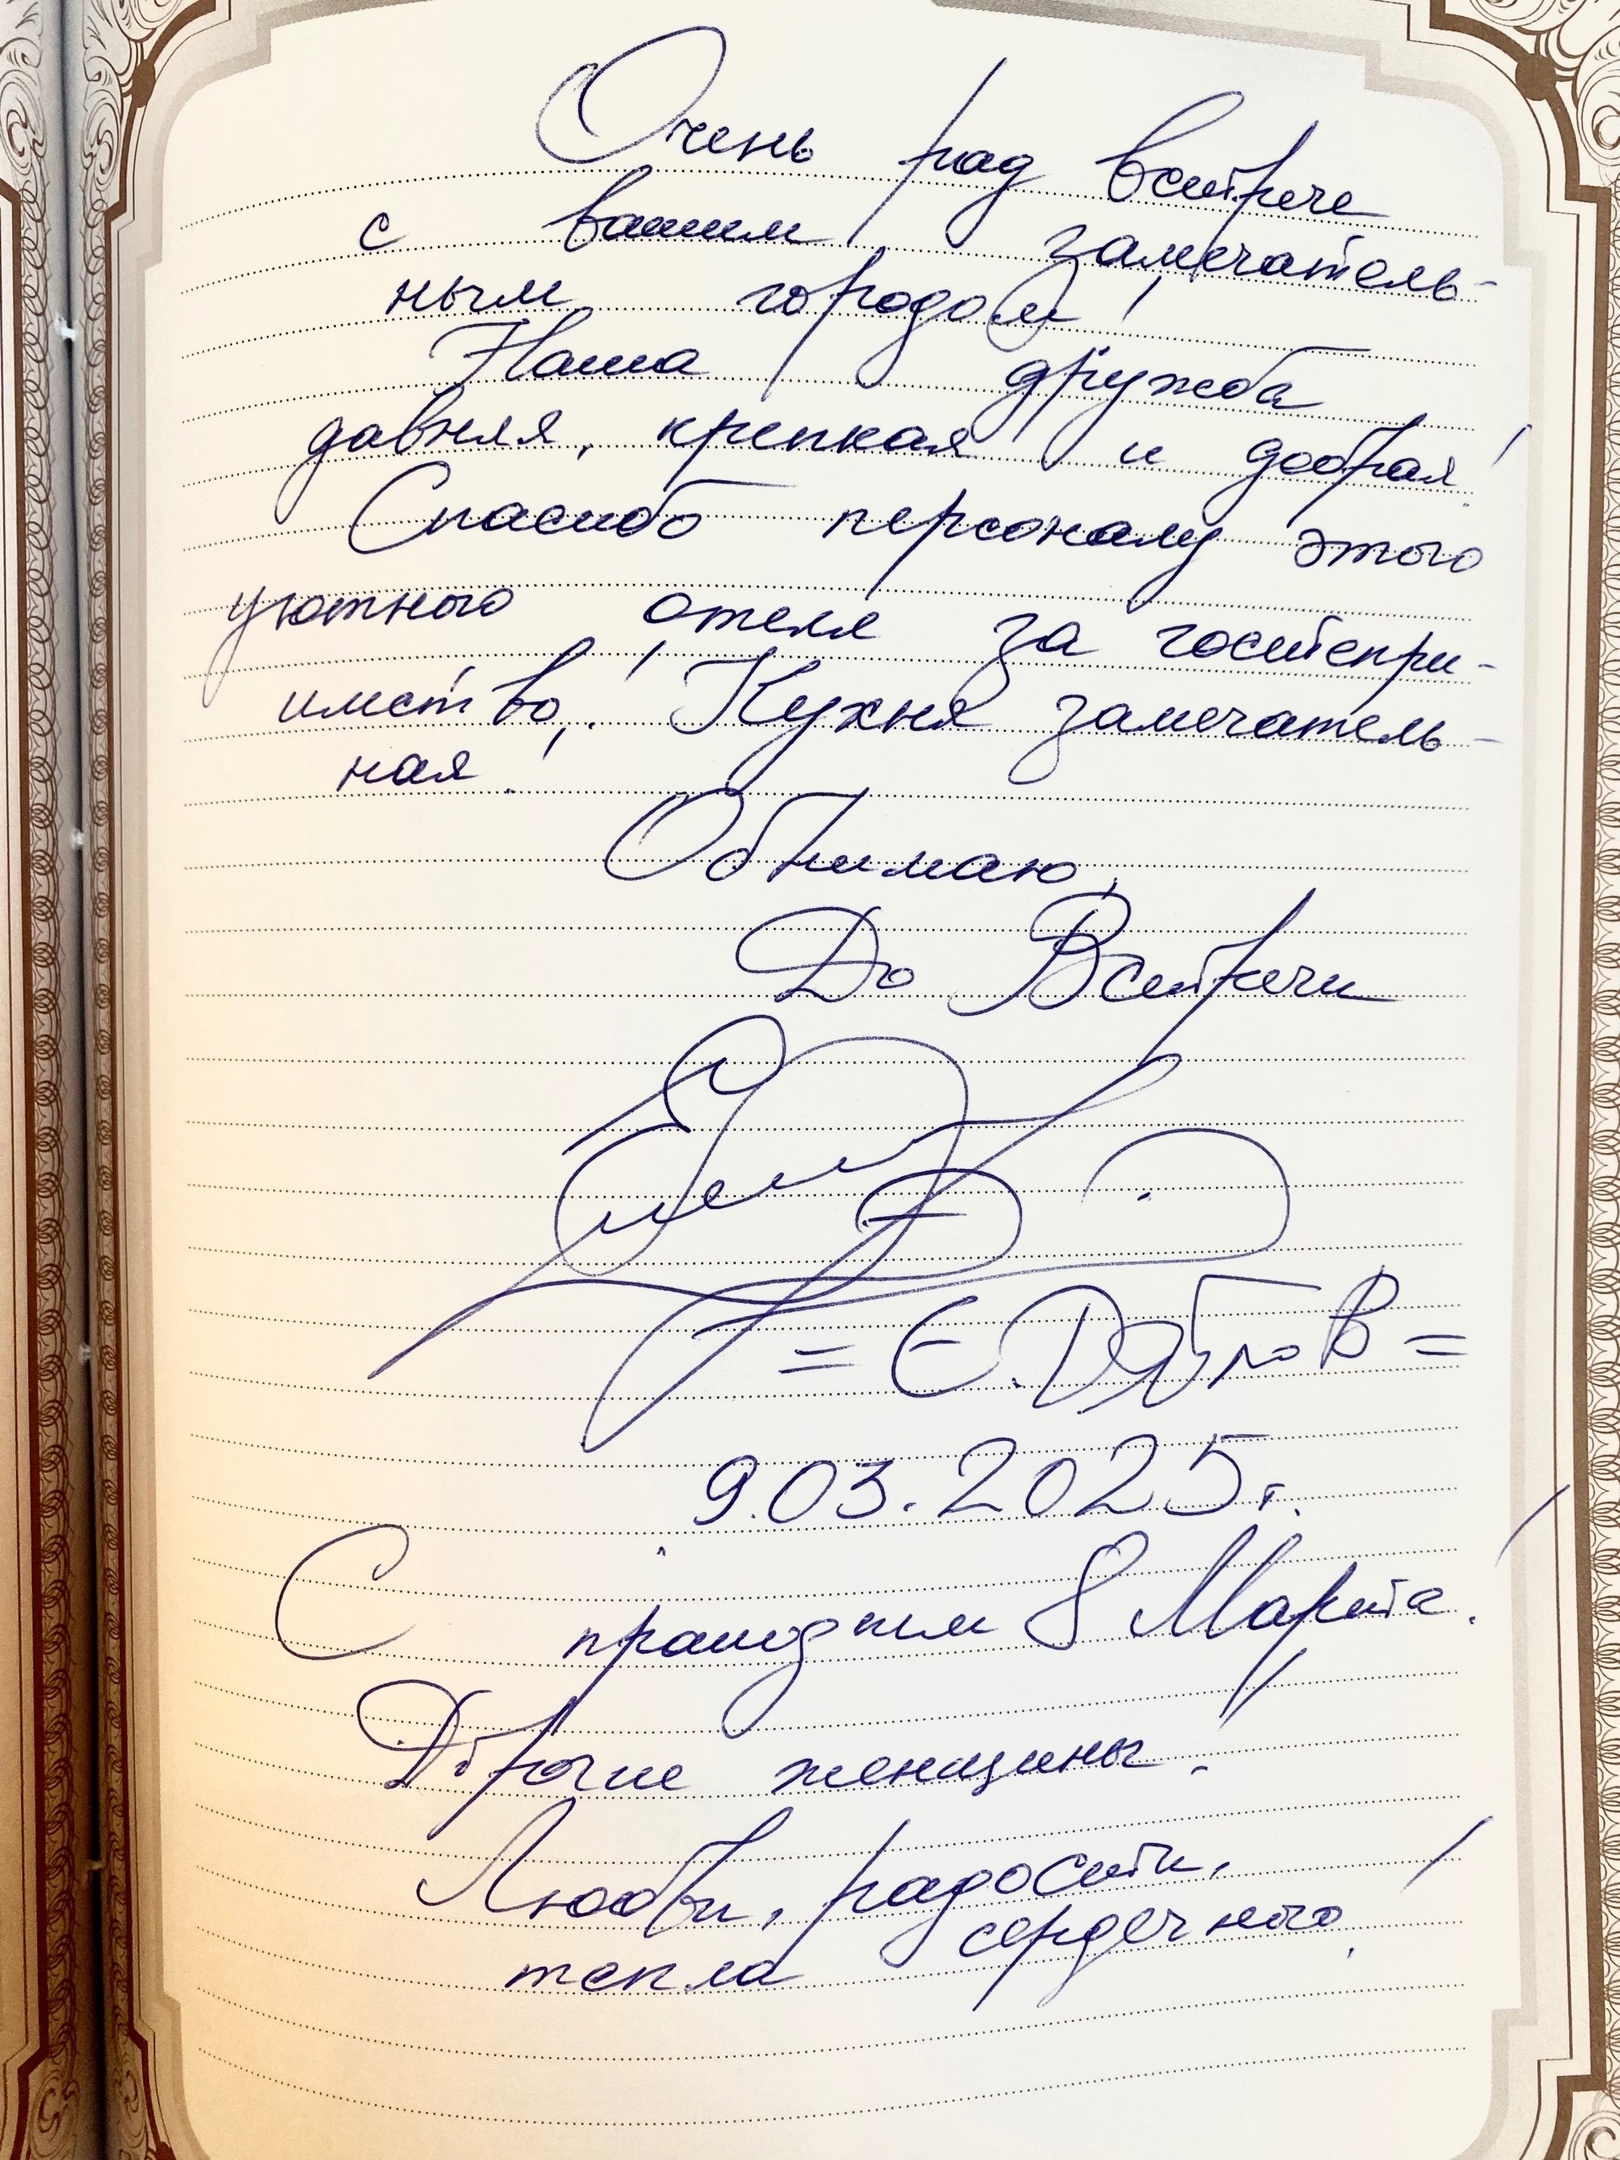 Очень рад встрече
с вашим замечатель-
ным городом!
Наша дружба
давняя, крепкая и добрая!
Спасибо персоналу этого
уютного отеля за гостепри-
имство! Кухня замечатель-
ная!
Обнимаю,
До Встречи
= Е. Дятлов =
9.03.2025г.
С праздником 8 Марта!
Дорогие женщины!
Любви, радости,
сердечного
тепла!